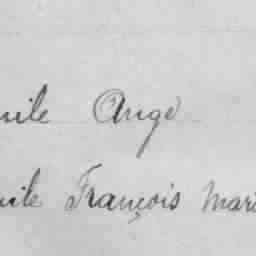 mile Ange
mile François Mari